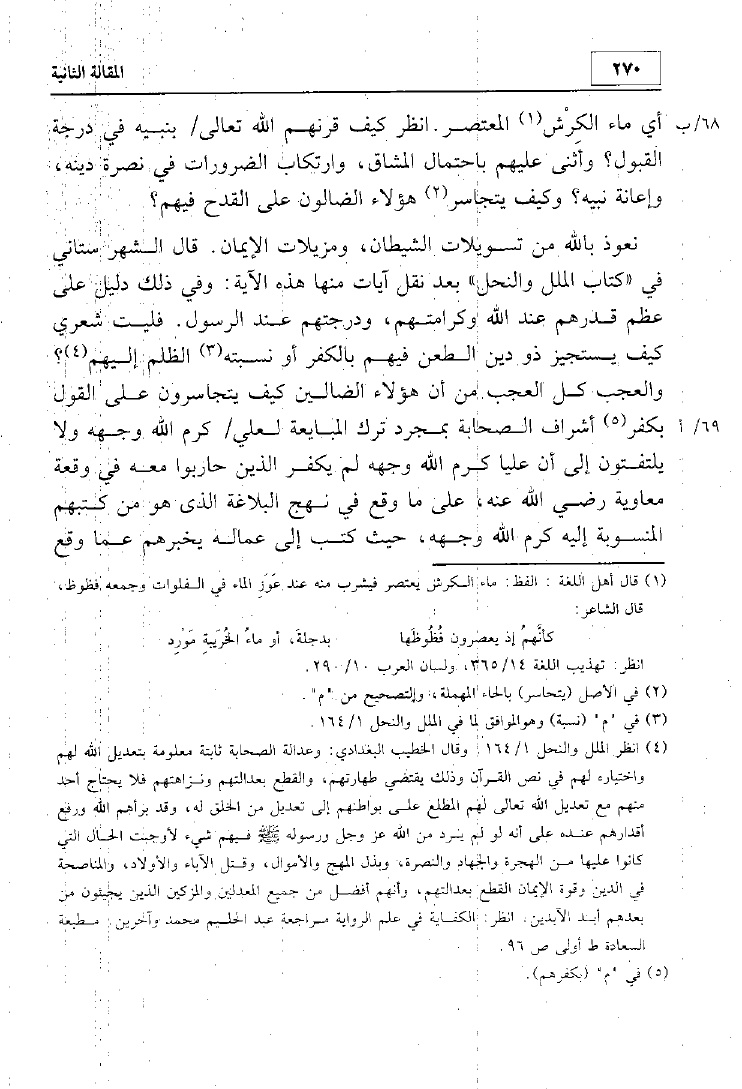 ٢٧٠
المقالة الثانية
٦٨/ب أي ماء الكَرِش(١) المعتصر. انظر كيف قرنهم الله تعالى/ بنبيه في درجة
القبول؟ وأثنى عليهم باحتمال المشاق، وارتكاب الضرورات في نصرة دينه،
وإعانة نبيه؟ وكيف يتجاسر(٢) هؤلاء الضالون على القدح فيهم؟
نعوذ بالله من تسويلات الشيطان، ومزيلات الإيمان. قال الشهر ستاني
في «كتاب الملل والنحل» بعد نقل آيات منها هذه الآية: وفي ذلك دليل على
عظم قدرهم عند الله وكرامتهم، ودرجتهم عند الرسول. فليت شعري
كيف يستجيز ذو دين الطعن فيهم بالكفر أو نسبته(٣) الظلم إليهم(٤)؟
والعجب كل العجب من أن هؤلاء الضالين كيف يتجاسرون على القول
٦٩/ أ بكفر(٥) أشراف الصحابة بمجرد ترك المبايعة لعلي/ كرم الله وجهه ولا
يلتفتون إلى أن عليا كرم الله وجهه لم يكفر الذين حاربوا معه في وقعة
معاوية رضي الله عنه، على ما وقع في نهج البلاغة الذى هو من كتبهم
المنسوبة إليه كرم الله وجهه، حيث كتب إلى عماله يخبرهم عما وقع
(١) قال أهل اللغة : الفظ: ماء الكرش يعتصر فيشرب منه عند عَوَزِ الماء في الفلوات وجمعه فظوظ،
قال الشاعر:
كأنَّهمُ إذ يعصرون فُظُوظَها بدجلةَ، أو ماءُ الخُرَيبةِ مَوْرِد
انظر: تهذيب اللغة ٣٦٥/١٤، ولسان العرب ٢٩٠/١٠.
(٢) في الأصل (يتحاسر) بالحاء المهملة، والتصحيح من "م".
(٣) في "م" (نسبة) وهوالموافق لما في الملل والنحل ١٦٤/١.
(٤) انظر الملل والنحل ١٦٤/١ وقال الخطيب البغدادي: وعدالة الصحابة ثابتة معلومة بتعديل الله لهم
واختياره لهم في نص القرآن وذلك يقتضي طهارتهم، والقطع بعدالتهم ونزاهتهم فلا يحتاج أحد
منهم مع تعديل الله تعالى لهم المطلع على بواطنهم إلى تعديل من الخلق له، وقد برأهم الله ورفع
أقدارهم عنده على أنه لو لم يرد من الله عز وجل ورسوله ﷺ فيهم شيء لأوجبت الحال التي
كانوا عليها من الهجرة والجهاد والنصرة، وبذل المهج والأموال، وقتل الآباء والأولاد، والمناصحة
في الدين وقوة الإيمان القطع بعدالتهم، وأنهم أفضل من جميع المعدلين والمزكين الذين يجيئون من
بعدهم أبد الآبدين. انظر: الكفاية في علم الرواية مراجعة عبد الحليم محمد وآخرين: مطبعة
السعادة ط أولى ص ٩٦.
(٥) في "م" (بكفرهم).